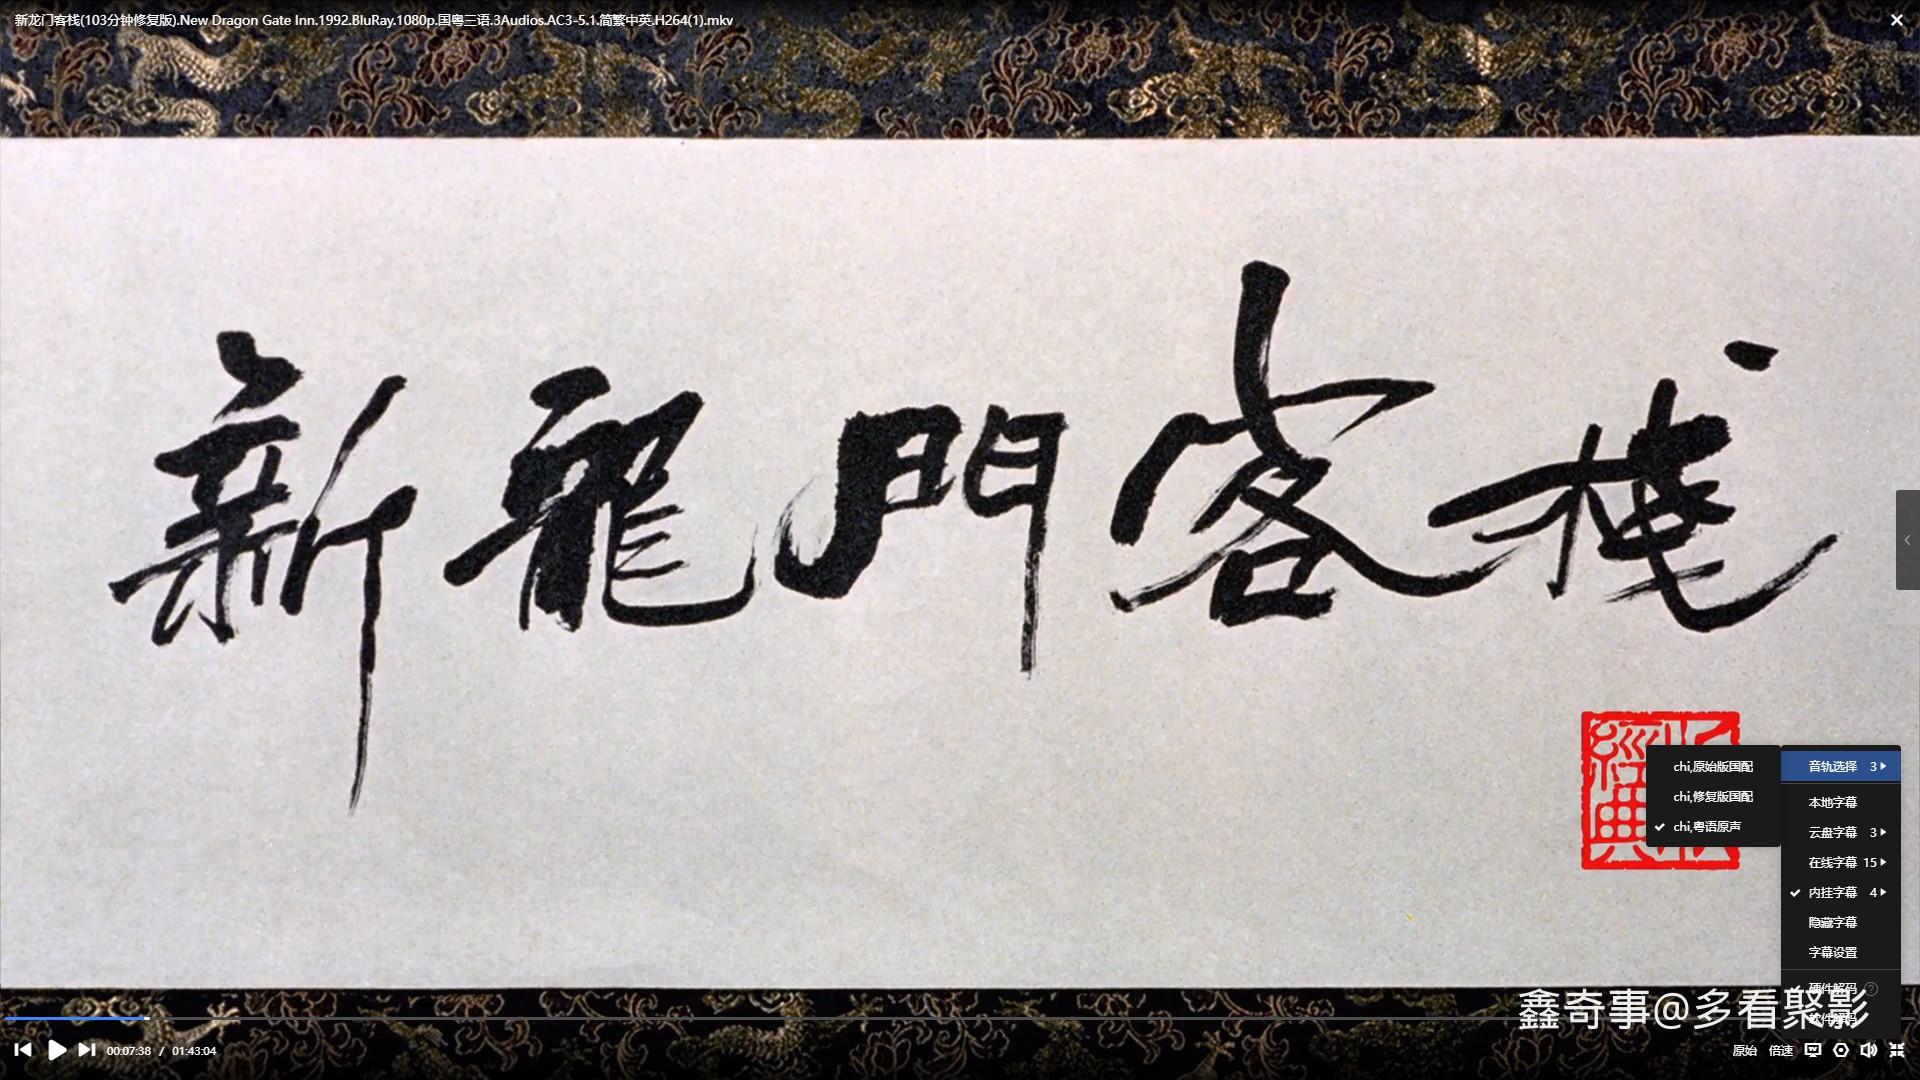 新龙门客栈(103分钟修复版).New Dragon Gate Inn.1992.BluRay.1080p.国粤三语.3Audios.AC3-5.1.简繁中英.H264(1).mkv
新龍門客棧
chi,原始版国配
chi,修复版国配
chi,粤语原声
音轨选择 3
本地字幕
云盘字幕 3
在线字幕 15
内挂字幕 4
隐藏字幕
字幕设置
硬件解码
软件解码
鑫奇事@多看聚影
00:07:38 / 01:43:04
原始 倍速